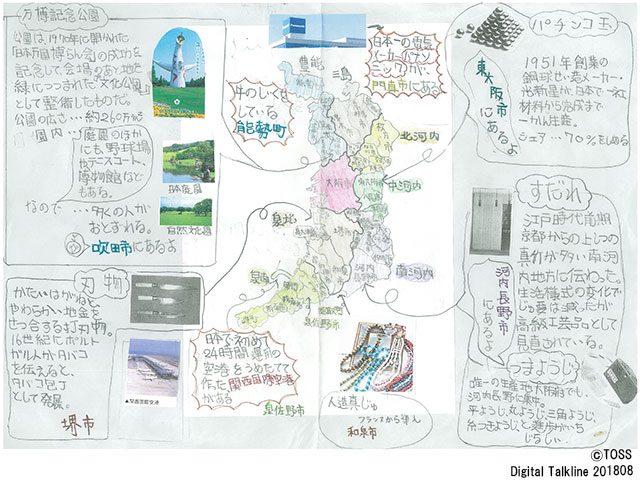 万博記念公園
公園は、1970年に開かれた
「日本万国博らん会」の成功を
記念して、会場のあと地を
緑につつまれた「文化公園」
として整備したものだ。
公園の広さ…約260万m²
園内…庭園のほか
にも、野球場
やテニスコート、
博物館なども
ある。
なので…多くの人が
おとずれる。
吹田市にあるよ
日本庭園
自然文化園
刃物
かたいはがねと
やわらかい地金を
せつ合する打刃物。
16世紀にポルト
ガル人がタバコ
を伝えると、
タバコ包丁
として発展。
堺市
▲関西国際空港
日本で初めて
24時間運用の
空港をうめたてて
作った関西国際空港
がある
泉佐野市
日本一の電気
メーカー(パナソ
ニック)が、
門真市にある
牛のしいくを
している
能勢町
豊能
三島
北河内
大阪市
中河内
泉北
泉南
南河内
人造真じゅ
フランスから導入
和泉市
パチンコ玉
1951年創業の
鋼球せい造メーカー
光新星が、日本で一社
材料から完成まで
一かん生産。
シェア…70%をしめる
東大阪市
にあるよ
すだれ
江戸時代前期
京都からの上しつの
真竹が多い南河
内地方に伝わった。
生活様式の変化で
じゅ要は減ったが
高級工芸品として
見直されている。
河内長野市
にあるよ
つまようじ
唯一の生産地、大阪府でも、
河内長野に集中。
平ようじ、丸ようじ、三角ようじ、
糸つきようじと、進歩がいち
じるしい。
©TOSS
Digital Talkline 201808